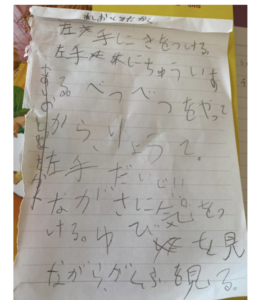 左手にきをつける。
左手にちゅういす
る。べつべつをやって
から、りょう て。
左手 だいじ!!
ながさに気をつ
ける。ゆび を見
ながら、がくふを見る。